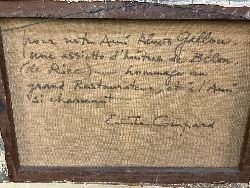 pour notre Ami Albert Galloux,
une assiette d'huîtres de Bélon
(de Riec) — hommage au
grand Restaurateur et à l'Ami
si charmant